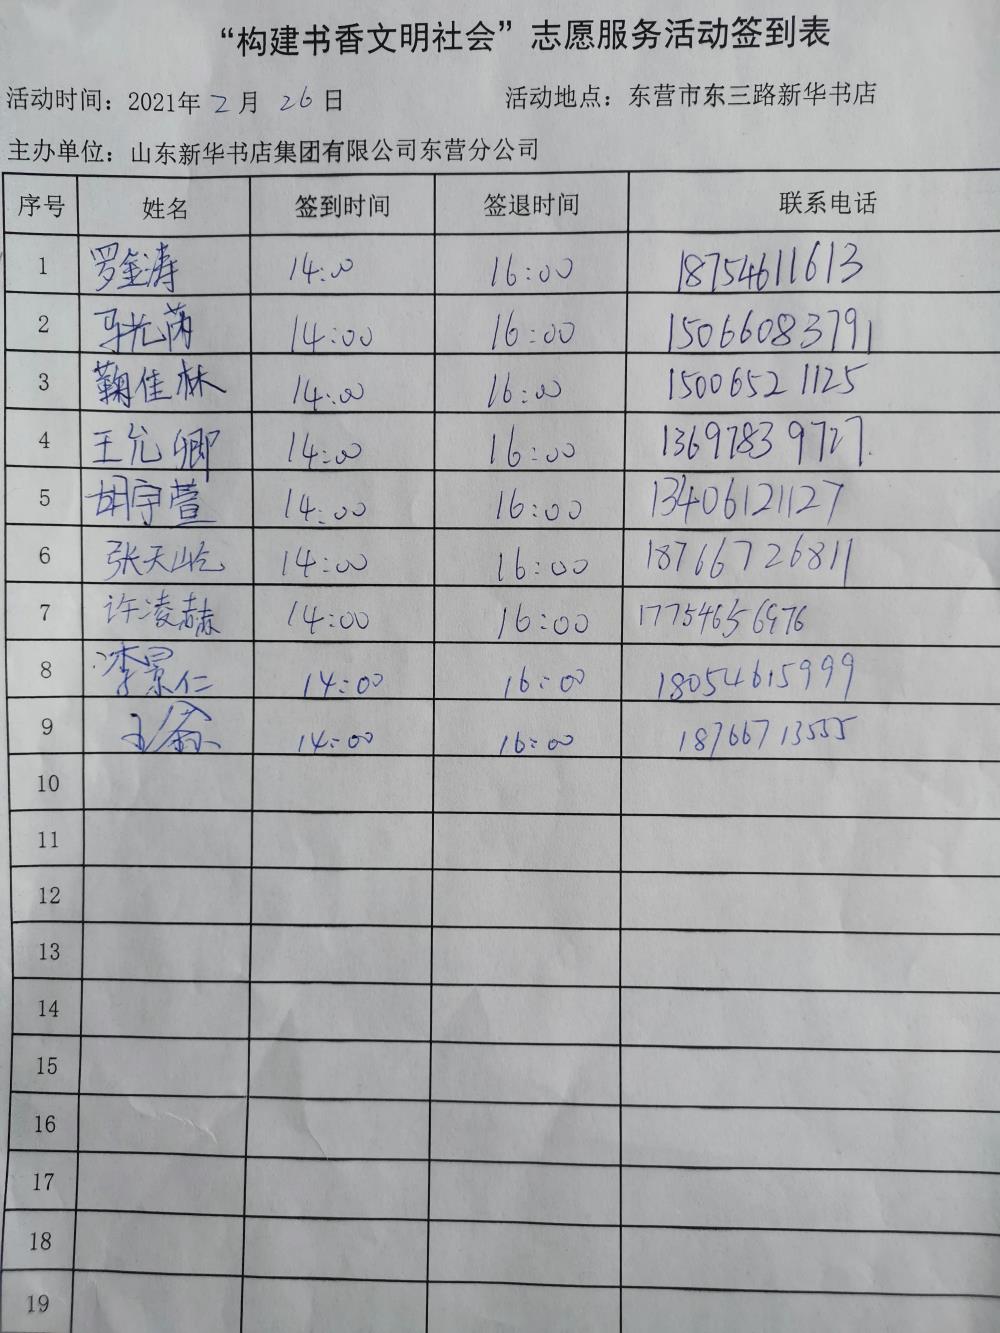 “构建书香文明社会”志愿服务活动签到表
活动时间：2021年 2 月 26 日 活动地点：东营市东三路新华书店
主办单位：山东新华书店集团有限公司东营分公司
序号 姓名 签到时间 签退时间 联系电话
1 罗金涛 14:00 16:00 18754611613
2 马光芮 14:00 16:00 15066083791
3 鞠佳林 14:00 16:00 15006521125
4 王允卿 14:00 16:00 13697839727
5 胡宇萱 14:00 16:00 13406121127
6 张天屹 14:00 16:00 18766726811
7 许凌赫 14:00 16:00 17754656976
8 李景仁 14:00 16:00 18054615999
9 王 14:00 16:00 18766713555
10
11
12
13
14
15
16
17
18
19